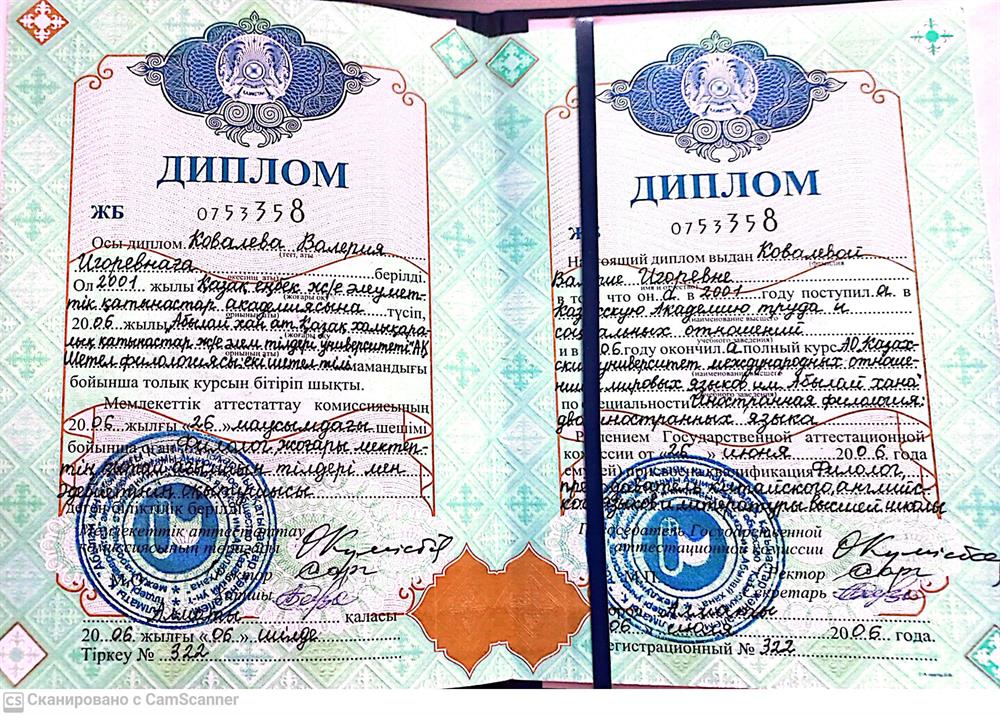 ДИПЛОМ
ЖБ 0753358
Осы диплом Ковалева Валерия
(тегі, аты
Игоревнаға берілді
Ол 2001 жылы Қазақ еңбек ж/е әлумет-
тік қатынастар академиясына түсіп,
2006 жылы Абылай хан ат. Қазақ халықара-
лық қатынастар ж/е әлем тілдері университеті" АҚ
Шетел филологиясы: екі шетел тілі мамандығы
бойынша толық курсын бітіріп шықты.
Мемлекеттік аттестаттау комиссиясының
2006 жылғы «26» маусымдағы шешімі
бойынша оған Филолог, жоғары мектеп-
тің қытай, ағылшын тілдері мен
әдебиетінің оқытушысы
деген біліктілік берілді
Мемлекеттік аттестаттау
комиссиясының төрағасы
М.О. Ректор
Хатшы
Алматы қаласы
2006 жылғы «06» шілде
Тіркеу № 322
ДИПЛОМ
ЖБ 0753358
Настоящий диплом выдан Ковалевой
(фамилия
Валерие Игоревне
имя и отчество)
в том, что он а в 2001 году поступил а в
Казахскую Академию труда и
(наименование высшего
социальных отношений
учебного заведения)
и в 2006 году окончил а полный курс АО "Казах-
ский университет международных отноше-
(наименование высшего
ний и мировых языков им. Абылай хана"
учебного заведения)
по специальности Иностранная филология:
два иностранных языка
Решением Государственной аттестационной
комиссии от «26» июня 2006 года
ему(ей) присвоена квалификация Филолог,
преподаватель китайского, английс-
кого языков и литературы высшей школы
Председатель Государственной
аттестационной комиссии
М.П. Ректор
Секретарь
Город Алматы
06 2006 года.
Регистрационный № 322
CS Сканировано с CamScanner